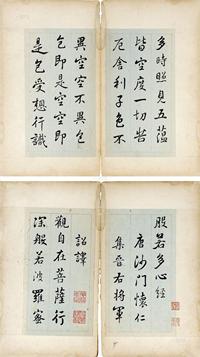 般若多心經
唐沙門懷仁
集晉右將軍
詔譯
觀自在菩薩行
深般若波羅蜜
多時照見五蘊
皆空度一切苦
厄舍利子色不
異空空不異色
色即是空空即
是色受想行識